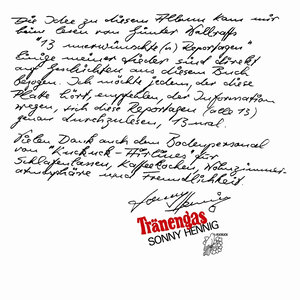 Die Idee zu diesem Album kam mir
beim Lesen von Günter Wallraffs
"13 unerwünschte(n) Reportagen"
Einige meiner Lieder sind direkt
auf Geschichten aus diesem Buch
bezogen. Ich möchte jedem, der diese
Platte hört, empfehlen, der Information
wegen, sich diese Reportagen (alle 13)
genau durchzulesen, 13mal.
Vielen Dank auch dem Bodenpersonal
von "Kuckuck-Airlines" für
Schlafenlassen, Kaffeekochen, Wohnzimmer-
atmosphäre und Freundlichkeit
Sonny Hennig
Tränengas
SONNY HENNIG